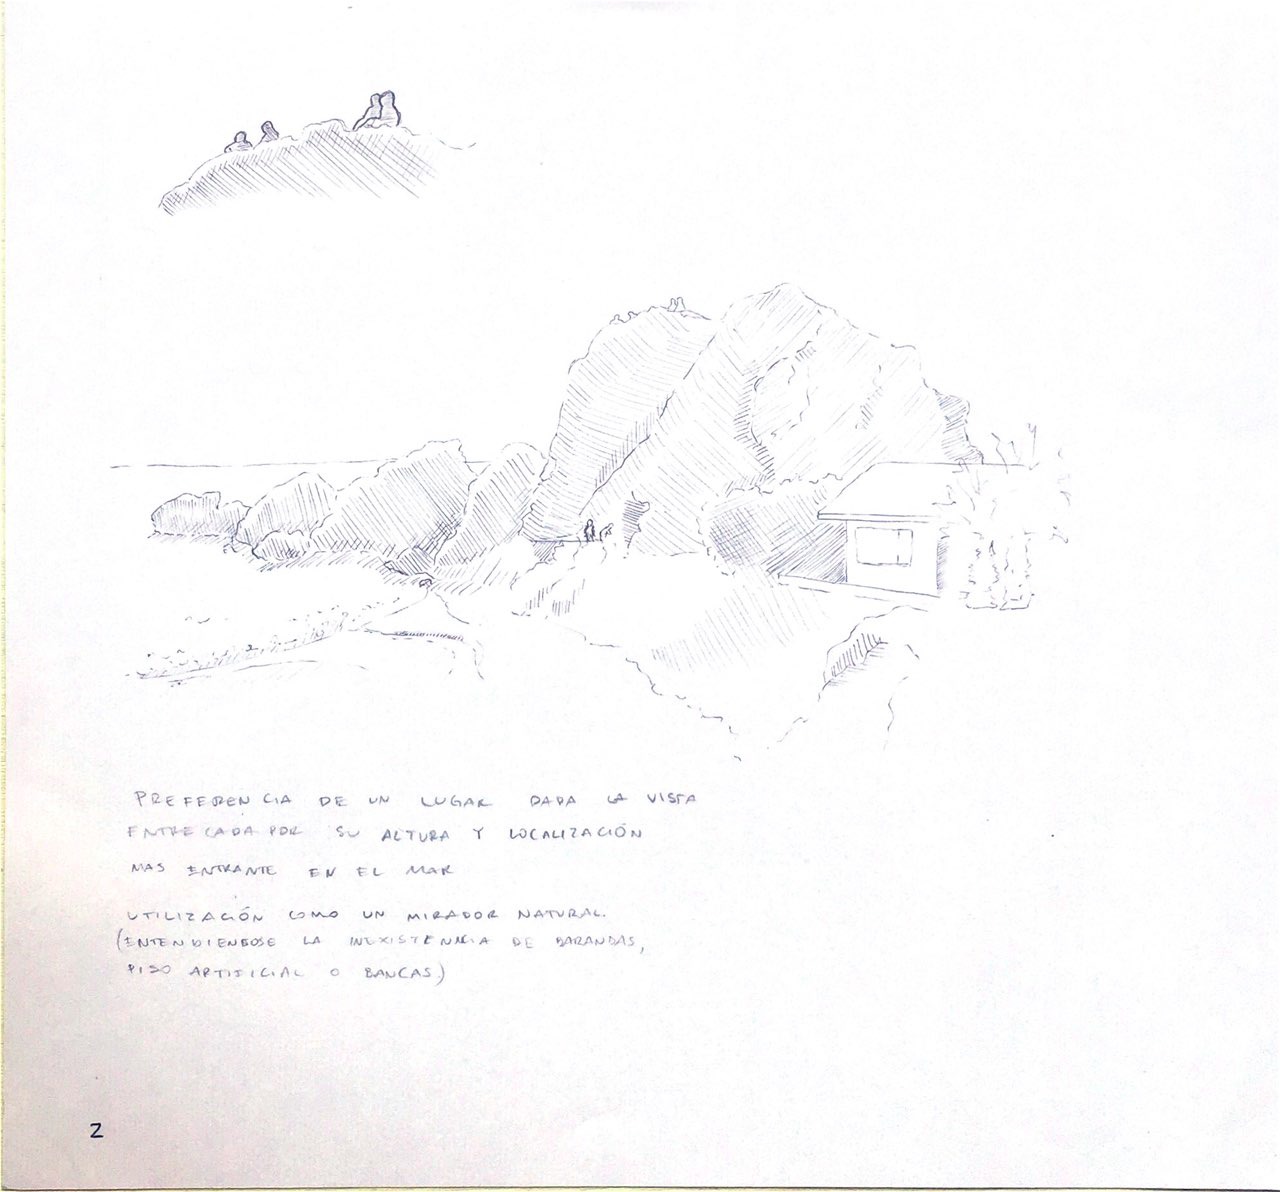 PREFERENCIA DE UN LUGAR DADA LA VISTA
ENTRECADA POR SU ALTURA Y LOCALIZACIÓN
MAS ENTRANTE EN EL MAR
UTILIZACIÓN COMO UN MIRADOR NATURAL.
(ENTENDIENDOSE LA INEXISTENCIA DE BARANDAS,
PISO ARTIFICIAL O BANCAS)
2